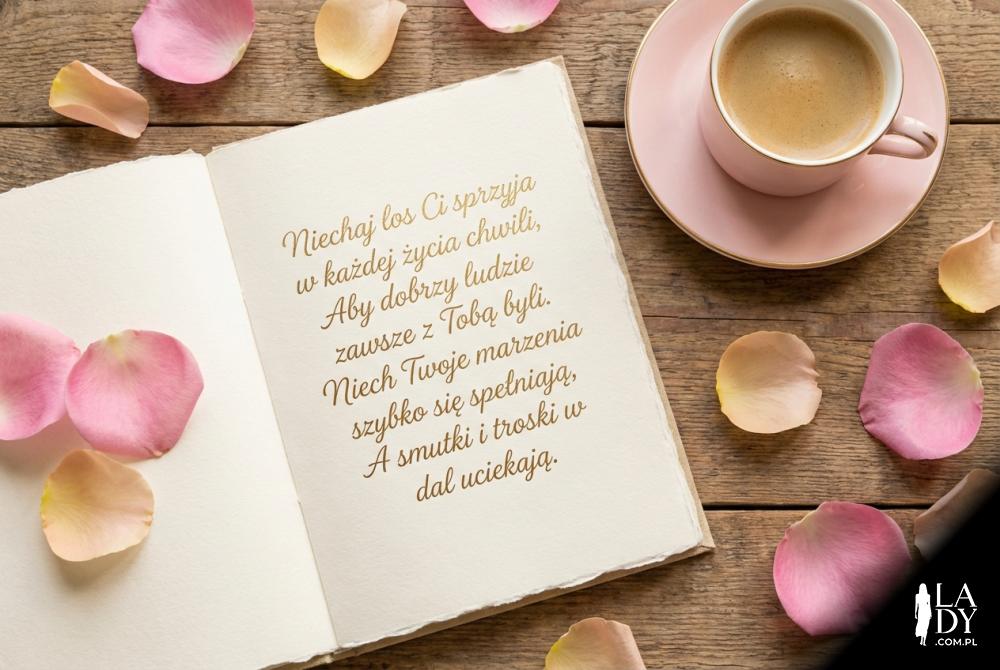 Niechaj los Ci sprzyja
w każdej życia chwili,
Aby dobrzy ludzie
zawsze z Tobą byli.
Niech Twoje marzenia
szybko się spełniają,
A smutki i troski w
dal uciekają.
LA
DY
.COM.PL